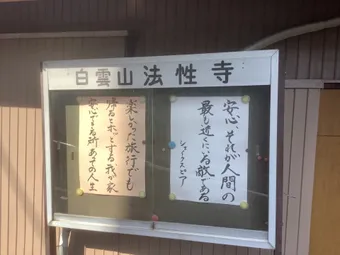 白雲山法性寺
安心、それが人間の
最も近くにいる敵である
シェークスピア
楽しかった旅行でも
帰るとホッとする我が家
安心できる所あっての人生